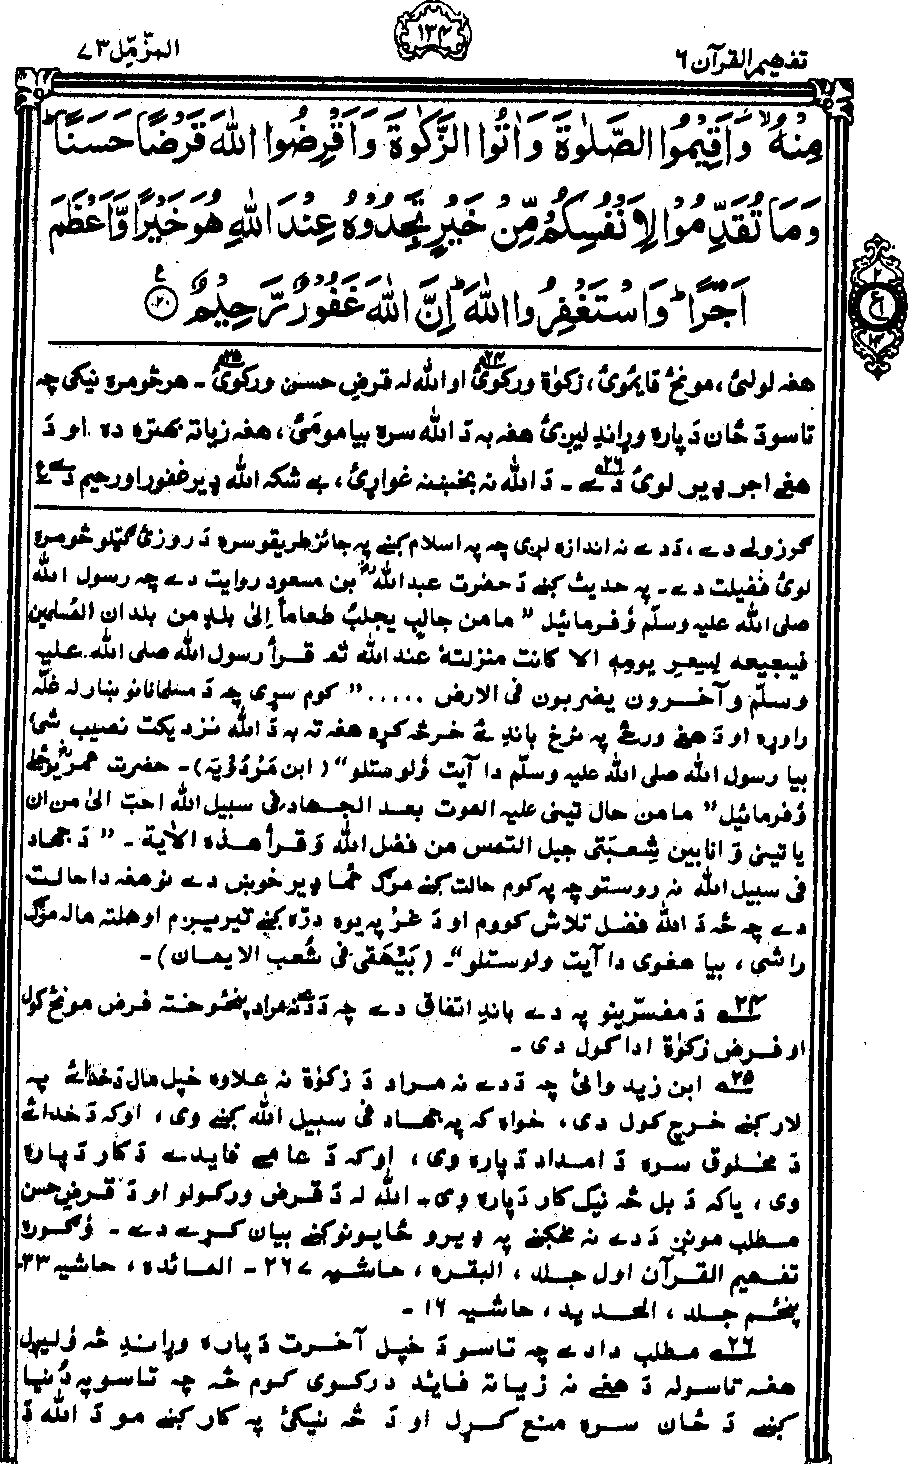 تفهیم القرآن ۶
۱۳۴
المزّمّل ۷۳
مِنْهُ ۙ وَاَقِيْمُوا الصَّلٰوةَ وَاٰتُوا الزَّكٰوةَ وَاَقْرِضُوا اللّٰهَ قَرْضًا حَسَنًا ؕ
وَمَا تُقَدِّمُوْا لِاَنْفُسِكُمْ مِّنْ خَيْرٍ تَجِدُوْهُ عِنْدَ اللّٰهِ هُوَ خَيْرًا وَّاَعْظَمَ
اَجْرًا ؕ وَاسْتَغْفِرُوا اللّٰهَ ؕ اِنَّ اللّٰهَ غَفُوْرٌ رَّحِيْمٌ ۲۰
هغه لولئ، مونځ قایموئ، زکوٰة ورکوئ۲۴ او الله له قرضِ حسن ورکوئ۲۵ ـ هر څومره نیکی چه
تاسو دَ ځان دَ پاره وړاندِ لیږئ هغه به دَ الله سره بیا مومئ، هغه زیاته بهتره ده او دَ
هغے اجر ډیر لوئ دے۲۶ ـ دَ الله نه بخښنه غواړئ، بے شکه الله ډیر غفور اور حیم دےع
ګرزولے دے، دَدے نه اندازه لږی چه په اسلام کښے په جائز طریقو سره دَ روزئ ګټلو څومره
لوئ فضیلت دے۔ په حدیث کښے دَ حضرت عبدالله بن مسعود روایت دے چه رسول الله
صلی الله علیه وسلّم وُفرمائیل ” مامن جالبٍ یجلبُ طعاماً إلیٰ بلدٍ من بلدان المُسلمین
فیبیعه لِسِعرِ یومِهٖ الا کانت منزلتهٗ عند الله ثم قرأ رسول الله صلی الله علیه
وسلّم وآخرون یضربون فی الارض ..... “ کوم سړی چه دَ مسلمانانو ښار له غلّه
راوړه او دَ هغے ورځے په نرخ باندِے خرڅه کړه هغه ته به دَ الله نزدیکت نصیب شی
بیا رسول الله صلی الله علیه وسلّم دا آیت وُلوستلو“ (ابن مَرْدُوْیَه)۔ حضرت عمرؓ یوځل
وُفرمائیل” مامن حال تیبنی علیه الموت بعد الجهاد فی سبیل الله احبّ الیٰ من ان
یاتینی وَ انا بین شِعبَتَی جبل التمس من فضل الله وَ قرأ هذه الاٰیة ۔ “ دَ جهاد
فی سبیل الله نه روستو چه په کوم حالت کښے مرګ ځما ډیر خوښ دے نو هغه دا حالت
دے چه څه دَ الله فضل تلاش کووم او دَ غرُ په یوه درّه کښے تیریږم او هلته ماله مرګ
راشی، بیا هغوی دا آیت ولوستلو“۔ (بَیْهَقی فی شُعب الایمان)۔
۲۴ دَ مفسّرینو په دے باندِ اتفاق دے چه دَدِنه مراد پنځوخته فرض مونځ کول
او فرض زکوٰة ادا کول دی ۔
۲۵ ابن زید وائی چه دَدے نه مراد دَ زکوٰة نه علاوه خپل مال دَ خدائے په
لار کښے خرچ کول دی، خواه که په جهاد فی سبیل الله کښے وی، اوکه دَ خدائے
دَ مخلوق سره دَ امداد دَ پاره وی، اوکه دَ عامے فایدے دَ کار دَ پاره
وی، یاکه دَ بل څه نیک کار دَ پاره وی۔ الله له دَ قرض ورکولو او دَ قرضِ حسن
مطلب مونږ دَدے نه مخکښے په ډیرو ځایونو کښے بیان کړے دے ۔ وُګوره
تفهیم القرآن اول جلد، البقره، حاشیه ۲۶۷ ۔ المائده، حاشیه ۳۳۔
پنځم جلد، الحدید، حاشیه ۱۶ ۔
۲۶ مطلب دا دے چه تاسو دَ خپل آخرت دَ پاره وړاندِ څه وُلیږل
هغه تاسو له دَ هغے نه زیاته فایده درکوی کوم څه چه تاسو په دُنیا
کښے دَ ځان سره منع کړل او دَ څه نیکئ په کار کښے مو دَ الله دَ